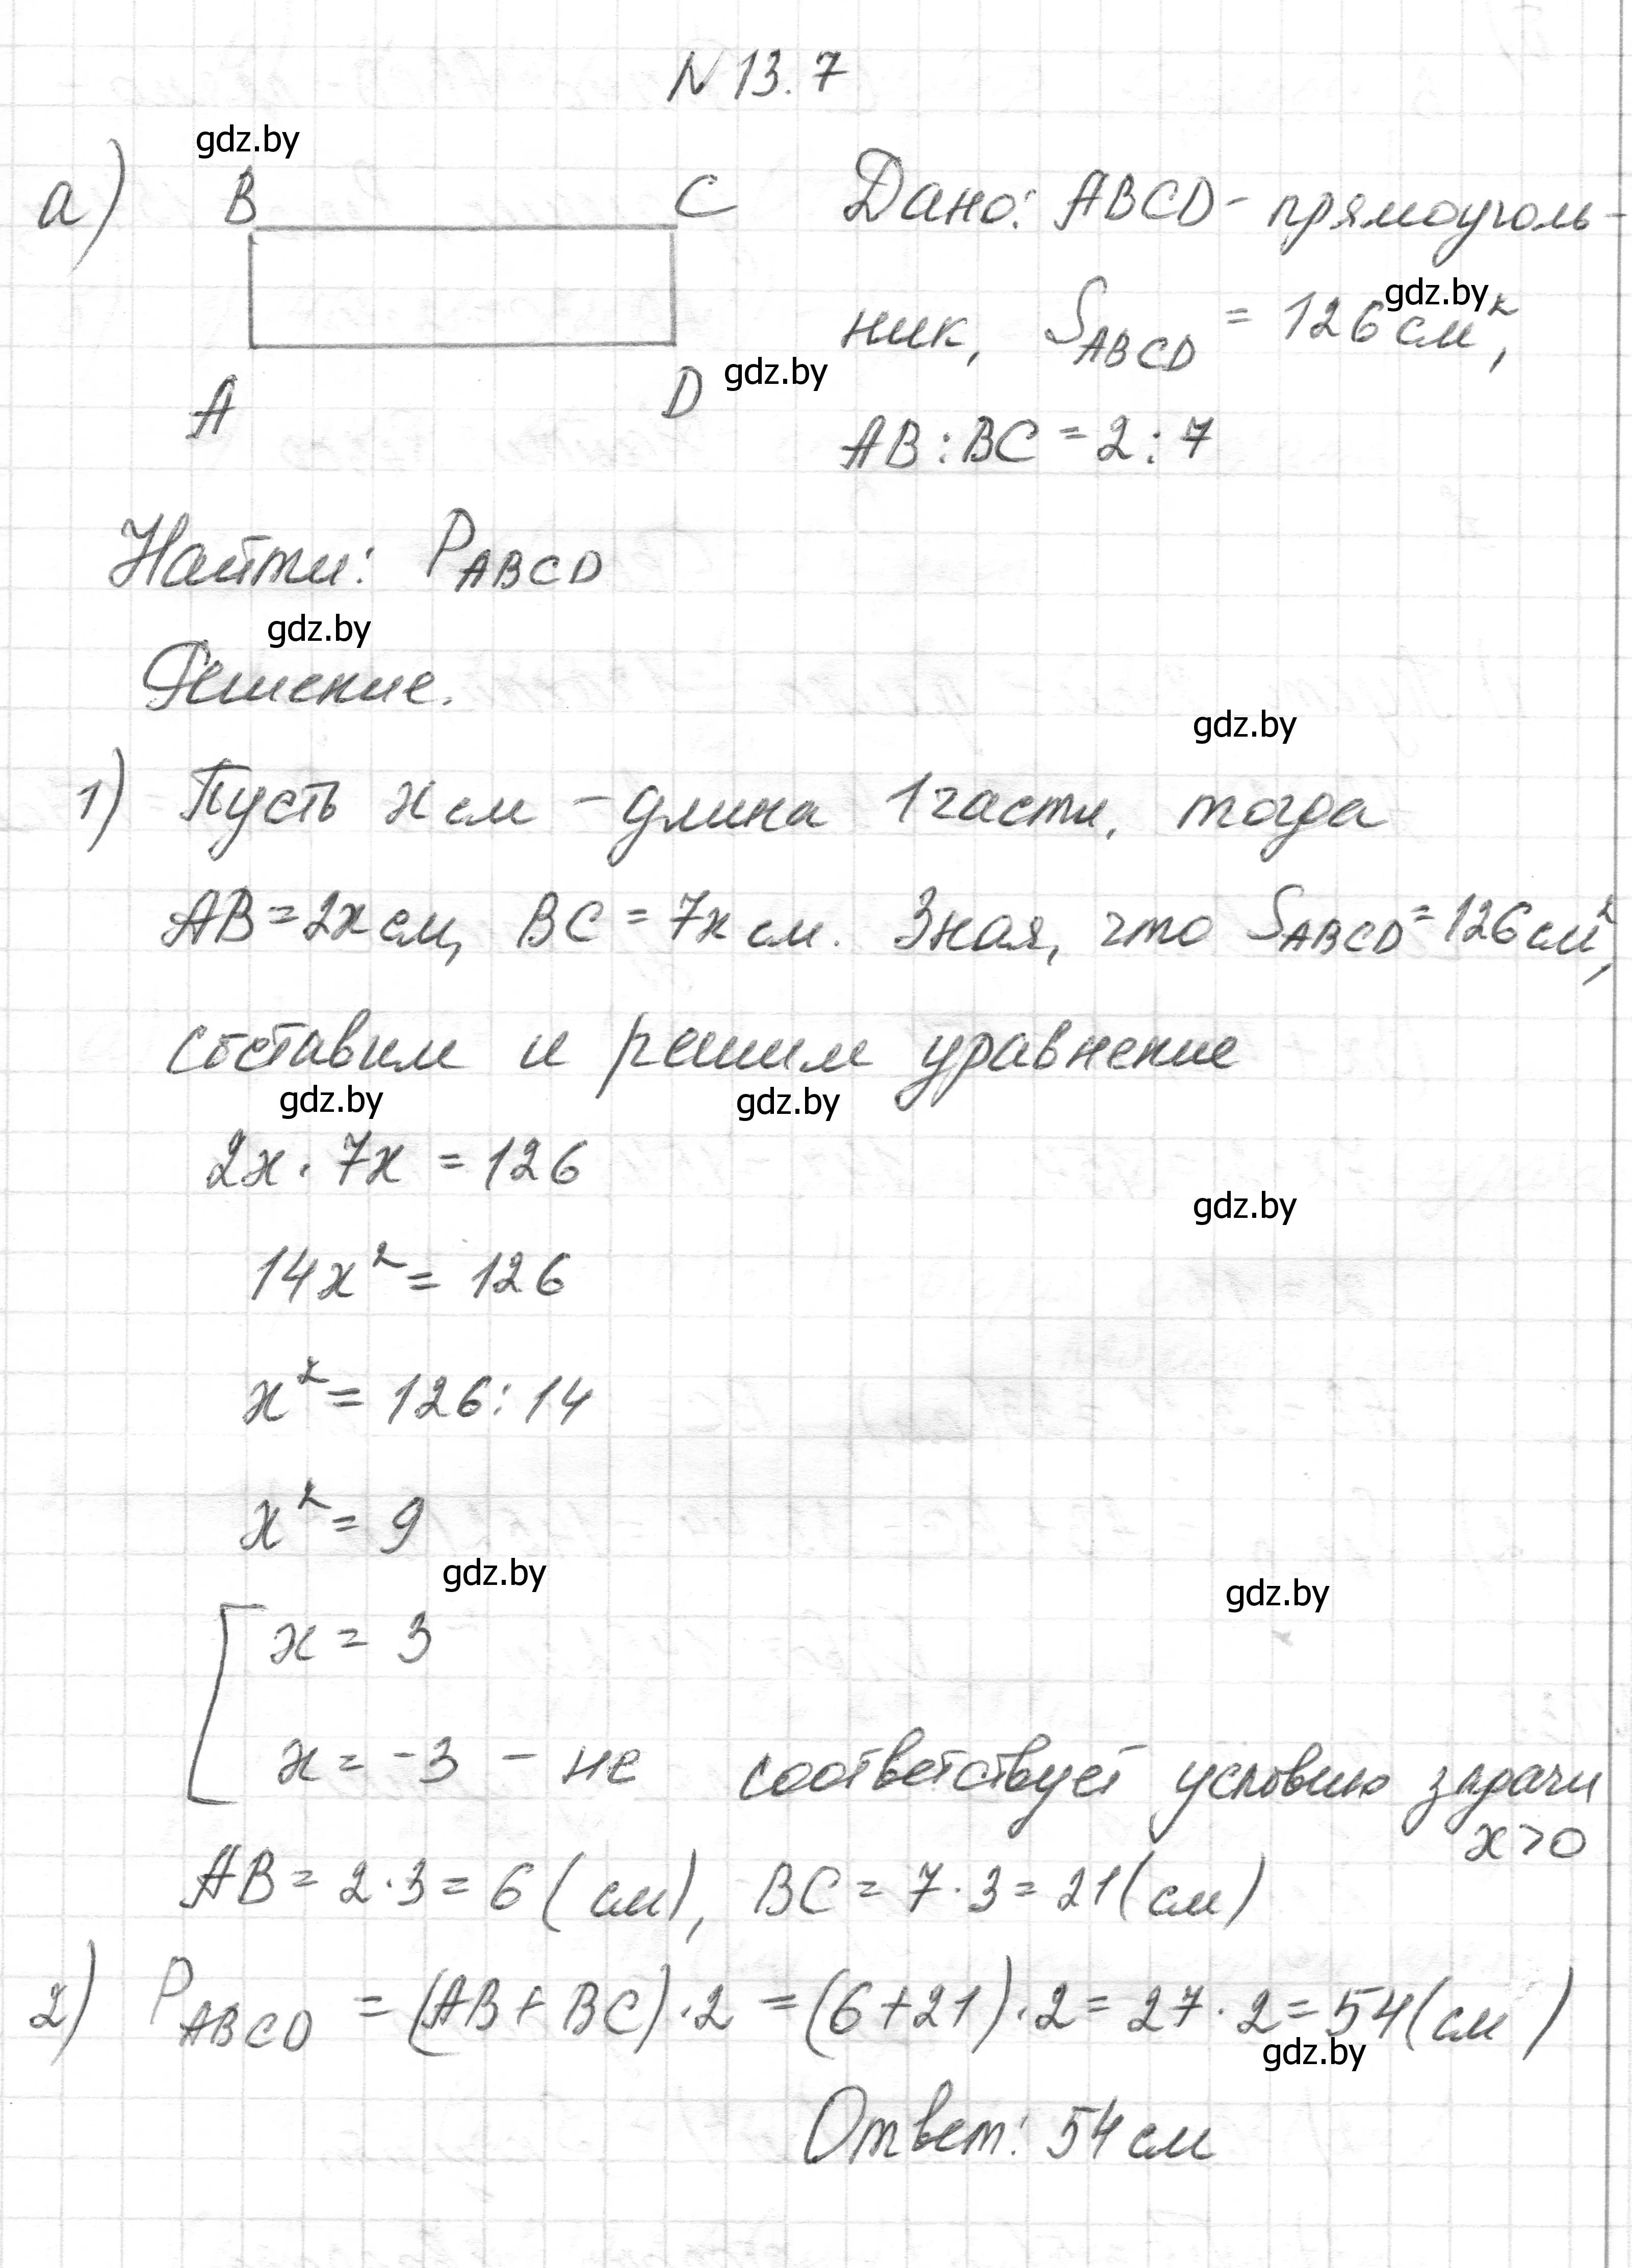 N 13.7
gdz.by
а) B C Дано: ABCD - прямоуголь-
gdz.by
ник, S_ABCD = 126 см²,
A D gdz.by
AB : BC = 2 : 7
Найти: P_ABCD
gdz.by
Решение.
gdz.by
1) Пусть x см - длина 1 части, тогда
AB = 2x см, BC = 7x см. Зная, что S_ABCD = 126 см²,
составим и решим уравнение
gdz.by gdz.by
2x · 7x = 126
gdz.by
14x² = 126
x² = 126 : 14
x² = 9
gdz.by gdz.by
[ x = 3
x = -3 - не соответствует условию задачи
x > 0
AB = 2 · 3 = 6 (см), BC = 7 · 3 = 21 (см)
2) P_ABCD = (AB + BC) · 2 = (6 + 21) · 2 = 27 · 2 = 54 (см)
gdz.by
Ответ: 54 см